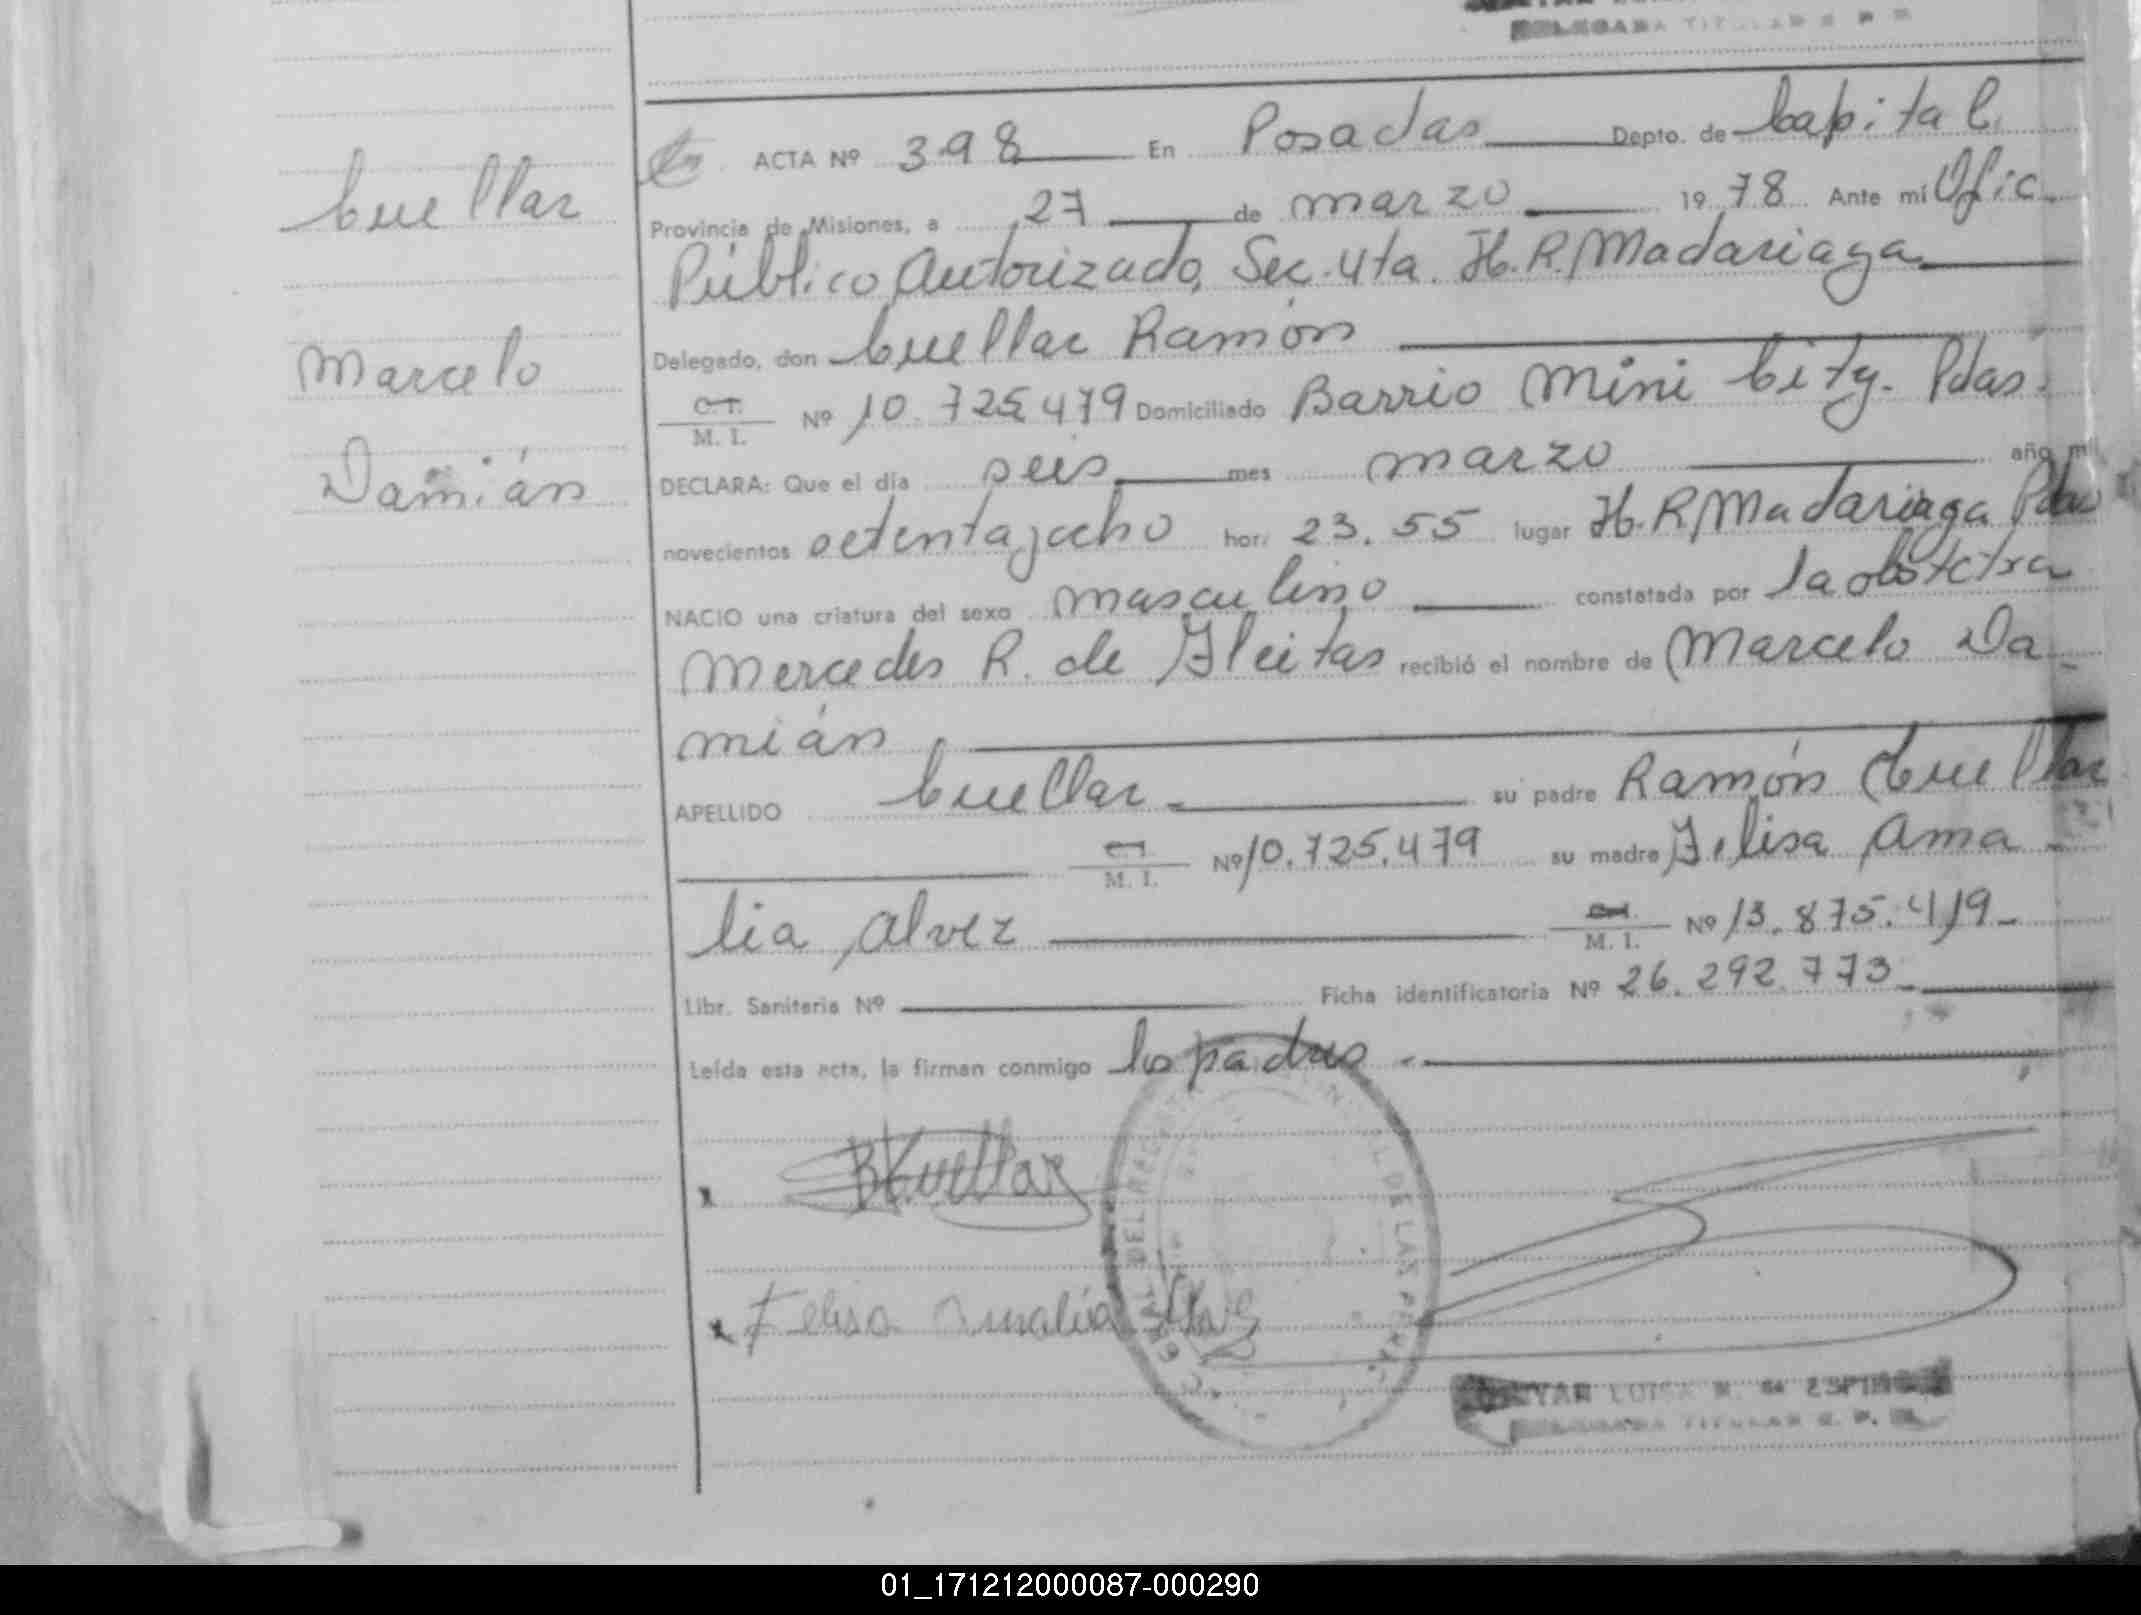 DELEGADA TITULAR R. P.
Cuellar
Marcelo
Damián
ACTA Nº 398 En Posadas Depto. de Capital
Provincia de Misiones, a 27 de marzo 1978 Ante mi Ofic.
Público Autorizado, Sec. 4ta. H. R. Madariaga
Delegado, don Cuellar Ramón
C. I.
M. I. Nº 10.725.479 Domiciliado Barrio Mini City. Pdas.
DECLARA: Que el día seis mes marzo año mil
novecientos setentayocho hor. 23.55 lugar H. R. Madariaga Pdas
NACIO una criatura del sexo masculino constatada por la obstetra
Mercedes R. de Fleitas recibió el nombre de Marcelo Da
mián
APELLIDO Cuellar su padre Ramón Cuellar
M. I. Nº 10.725.479 su madre Felisa Ama
lia Alvez M. I. Nº 13.875.419-
Libr. Sanitaria Nº Ficha identificatoria Nº 26.292.773-
Leída esta acta, la firman conmigo los padres
x RCuellar
x Felisa Amalia Alvez
LUISA ESPINOZA
DELEGADA TITULAR R. P.
01_171212000087-000290